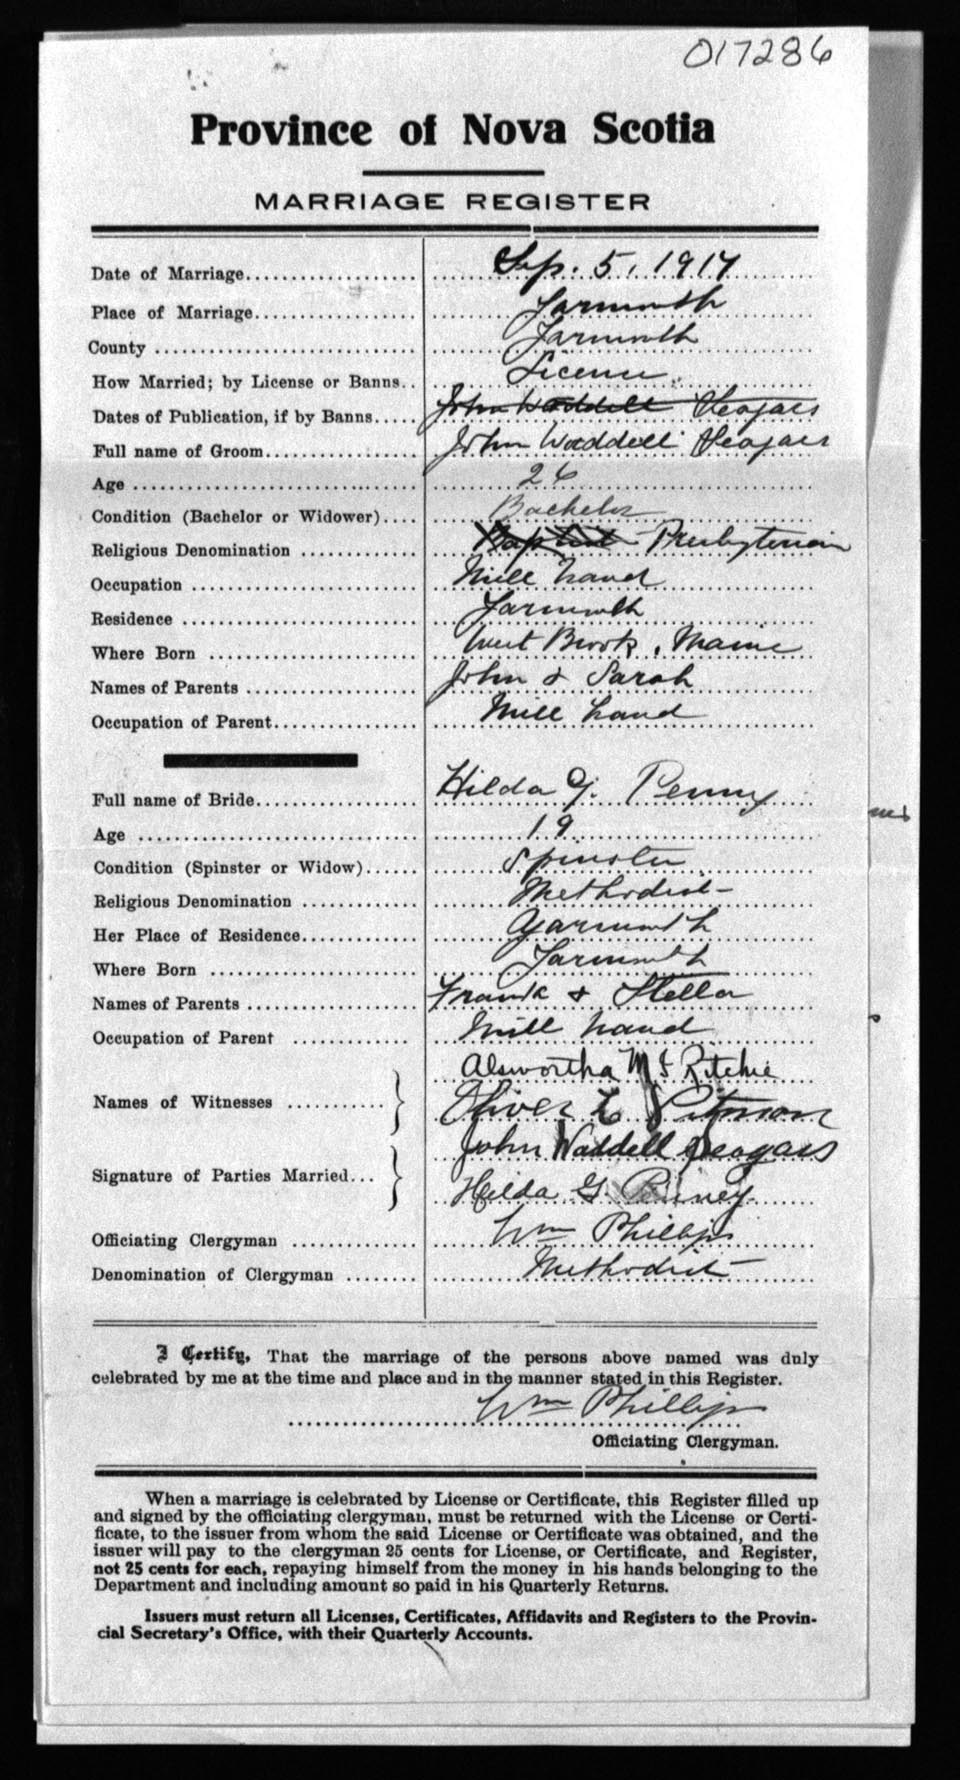 017286
Province of Nova Scotia
MARRIAGE REGISTER
Date of Marriage Sep. 5, 1917
Place of Marriage Yarmouth
County Yarmouth
How Married; by License or Banns Licence
Dates of Publication, if by Banns John Waddell
Full name of Groom John Waddell
Age 26
Condition (Bachelor or Widower) Bachelor
Religious Denomination Baptist Presbyterian
Occupation Mill hand
Residence Yarmouth
Where Born West Brook, Maine
Names of Parents John & Sarah
Occupation of Parent Mill hand
Full name of Bride Hilda G. Penny
Age 19
Condition (Spinster or Widow) Spinster
Religious Denomination Methodist
Her Place of Residence Yarmouth
Where Born Yarmouth
Names of Parents Frank & Stella
Occupation of Parent Mill hand
Alswortha Ritchie
Names of Witnesses
Oliver L Pitman
John Waddell
Signature of Parties Married
Hilda G. Pinney.
Officiating Clergyman Wm Phillips
Denomination of Clergyman Methodist
I Certify, That the marriage of the persons above named was duly
celebrated by me at the time and place and in the manner stated in this Register.
Wm Phillips
Officiating Clergyman.
When a marriage is celebrated by License or Certificate, this Register filled up
and signed by the officiating clergyman, must be returned with the License or Certi-
ficate, to the issuer from whom the said License or Certificate was obtained, and the
issuer will pay to the clergyman 25 cents for License, or Certificate, and Register,
not 25 cents for each, repaying himself from the money in his hands belonging to the
Department and including amount so paid in his Quarterly Returns.
Issuers must return all Licenses, Certificates, Affidavits and Registers to the Provin-
cial Secretary's Office, with their Quarterly Accounts.